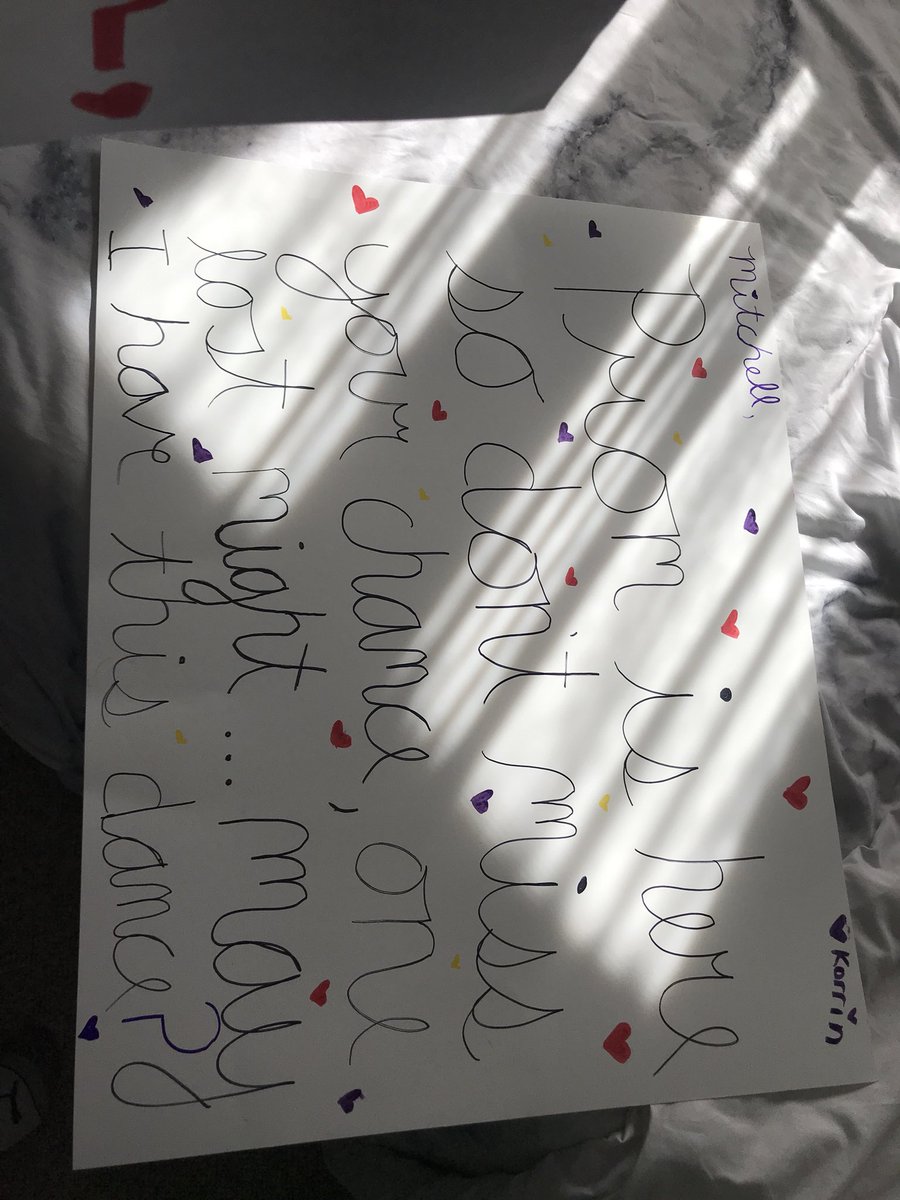 Mitchell,
♥ Korrin
Prom is here
so don't miss
your chance, one
last night ... may
I have this dance?